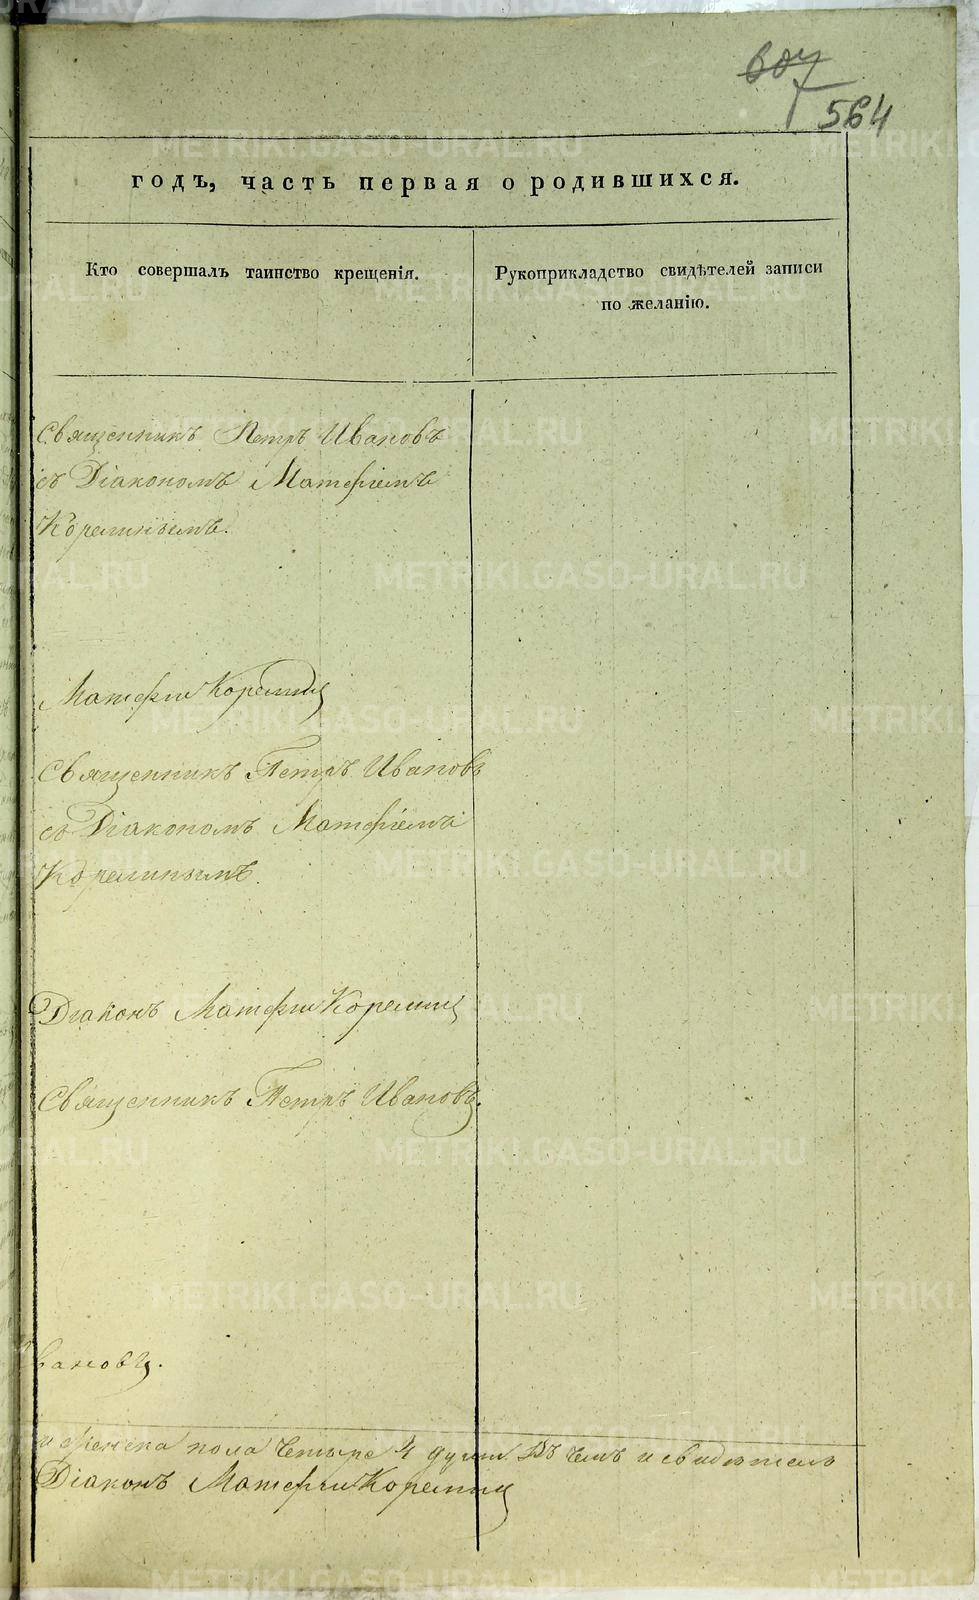 564
годъ, часть первая о родившихся.
Кто совершалъ таинство крещенія.
Рукоприкладство свидѣтелей записи
по желанію.
Священникъ Петръ Ивановъ
съ Діакономъ Матфіемъ
Корелинымъ.
Матфій Корелинъ
Священникъ Петръ Ивановъ
съ Діакономъ Матфіемъ
Корелинымъ.
Діаконъ Матфій Корелинъ
Священникъ Петръ Ивановъ.
Ивановъ.
и женска пола четыре 4 души. Въ чемъ и свидѣтель
Діаконъ Матфій Корелинъ
METRIKI.GASO-URAL.RU